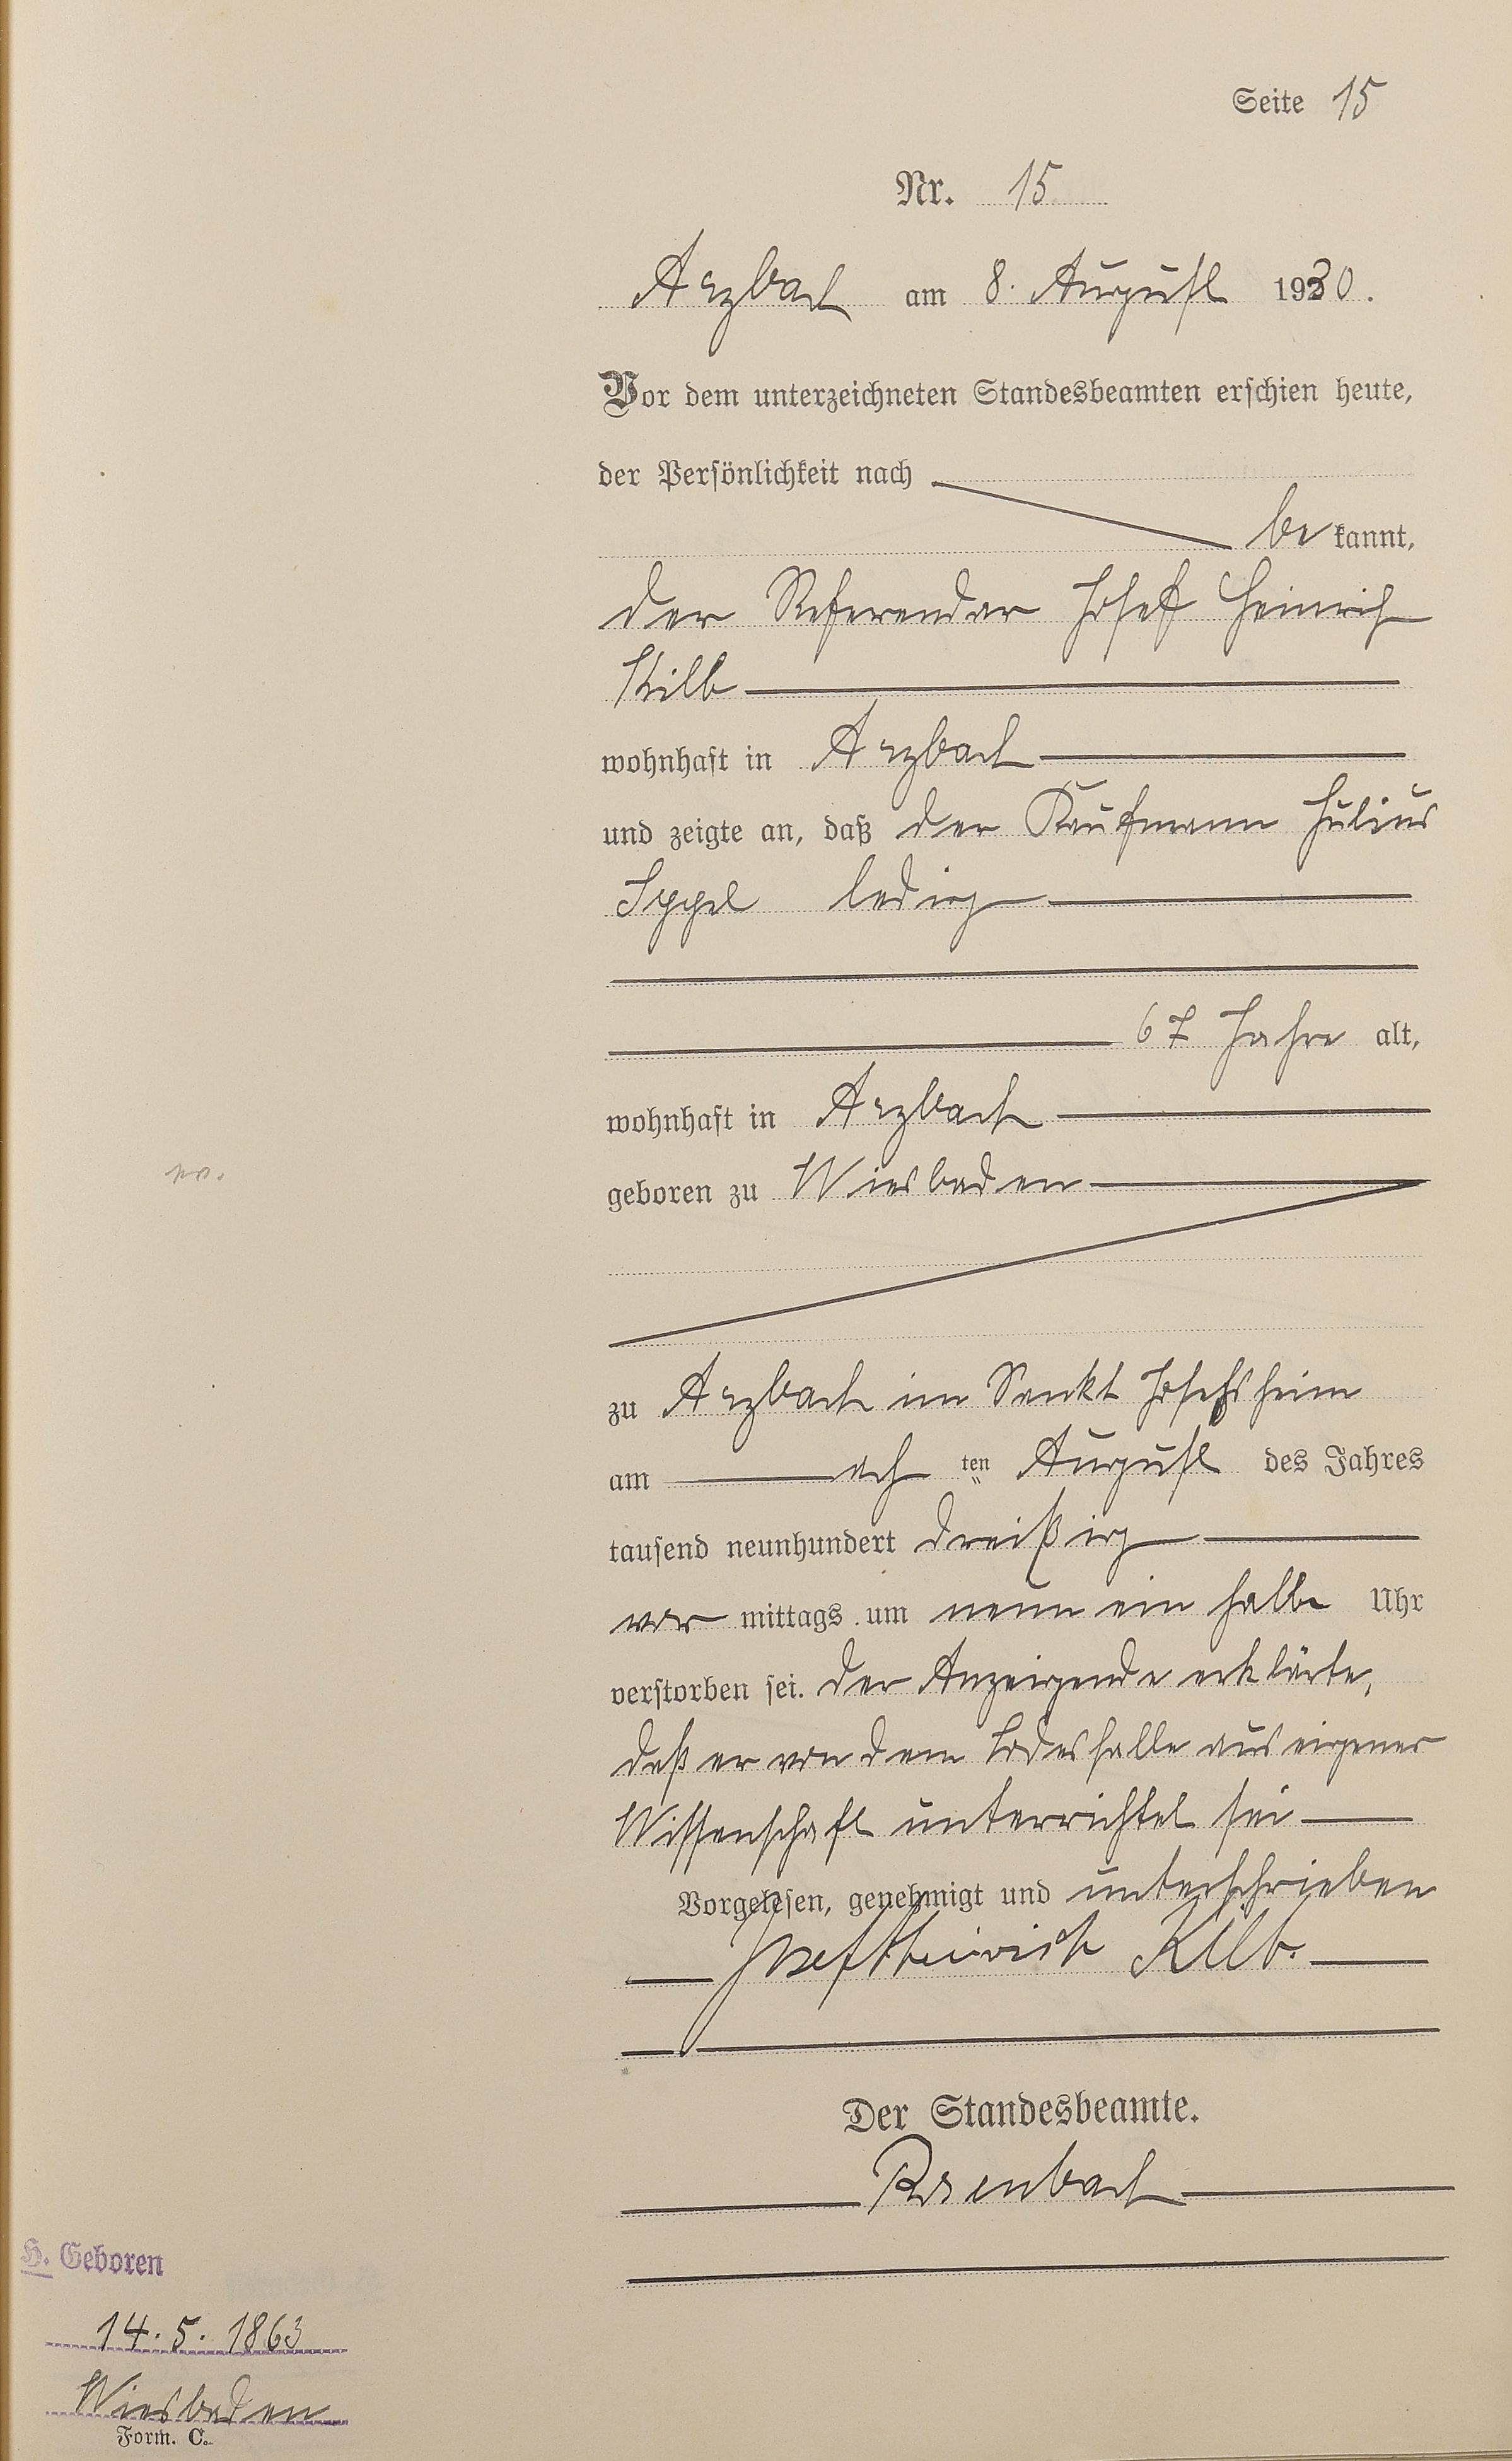 Seite 15
Nr. 15
Arzbach am 8. August 1930.
Vor dem unterzeichneten Standesbeamten erschien heute,
der Persönlichkeit nach
be kannt,
der Referendar Josef Heinrich
Kilb
wohnhaft in Arzbach
und zeigte an, daß der Kaufmann Julius
Ippel ledig
67 Jahre alt,
wohnhaft in Arzbach
geboren zu Wiesbaden
zu Arzbach im Sankt Josefsheim
am ach ten August des Jahres
tausend neunhundert dreißig
vor mittags um neun ein halb Uhr
verstorben sei. Der Anzeigende erklärte,
daß er von dem Todesfalle aus eigener
Wissenschaft unterrichtet sei
Vorgelesen, genehmigt und unterschrieben
Josef Heinrich Kilb.
Der Standesbeamte.
Rosenbach
H. Geboren
14. 5. 1863
Wiesbaden
Form. C.